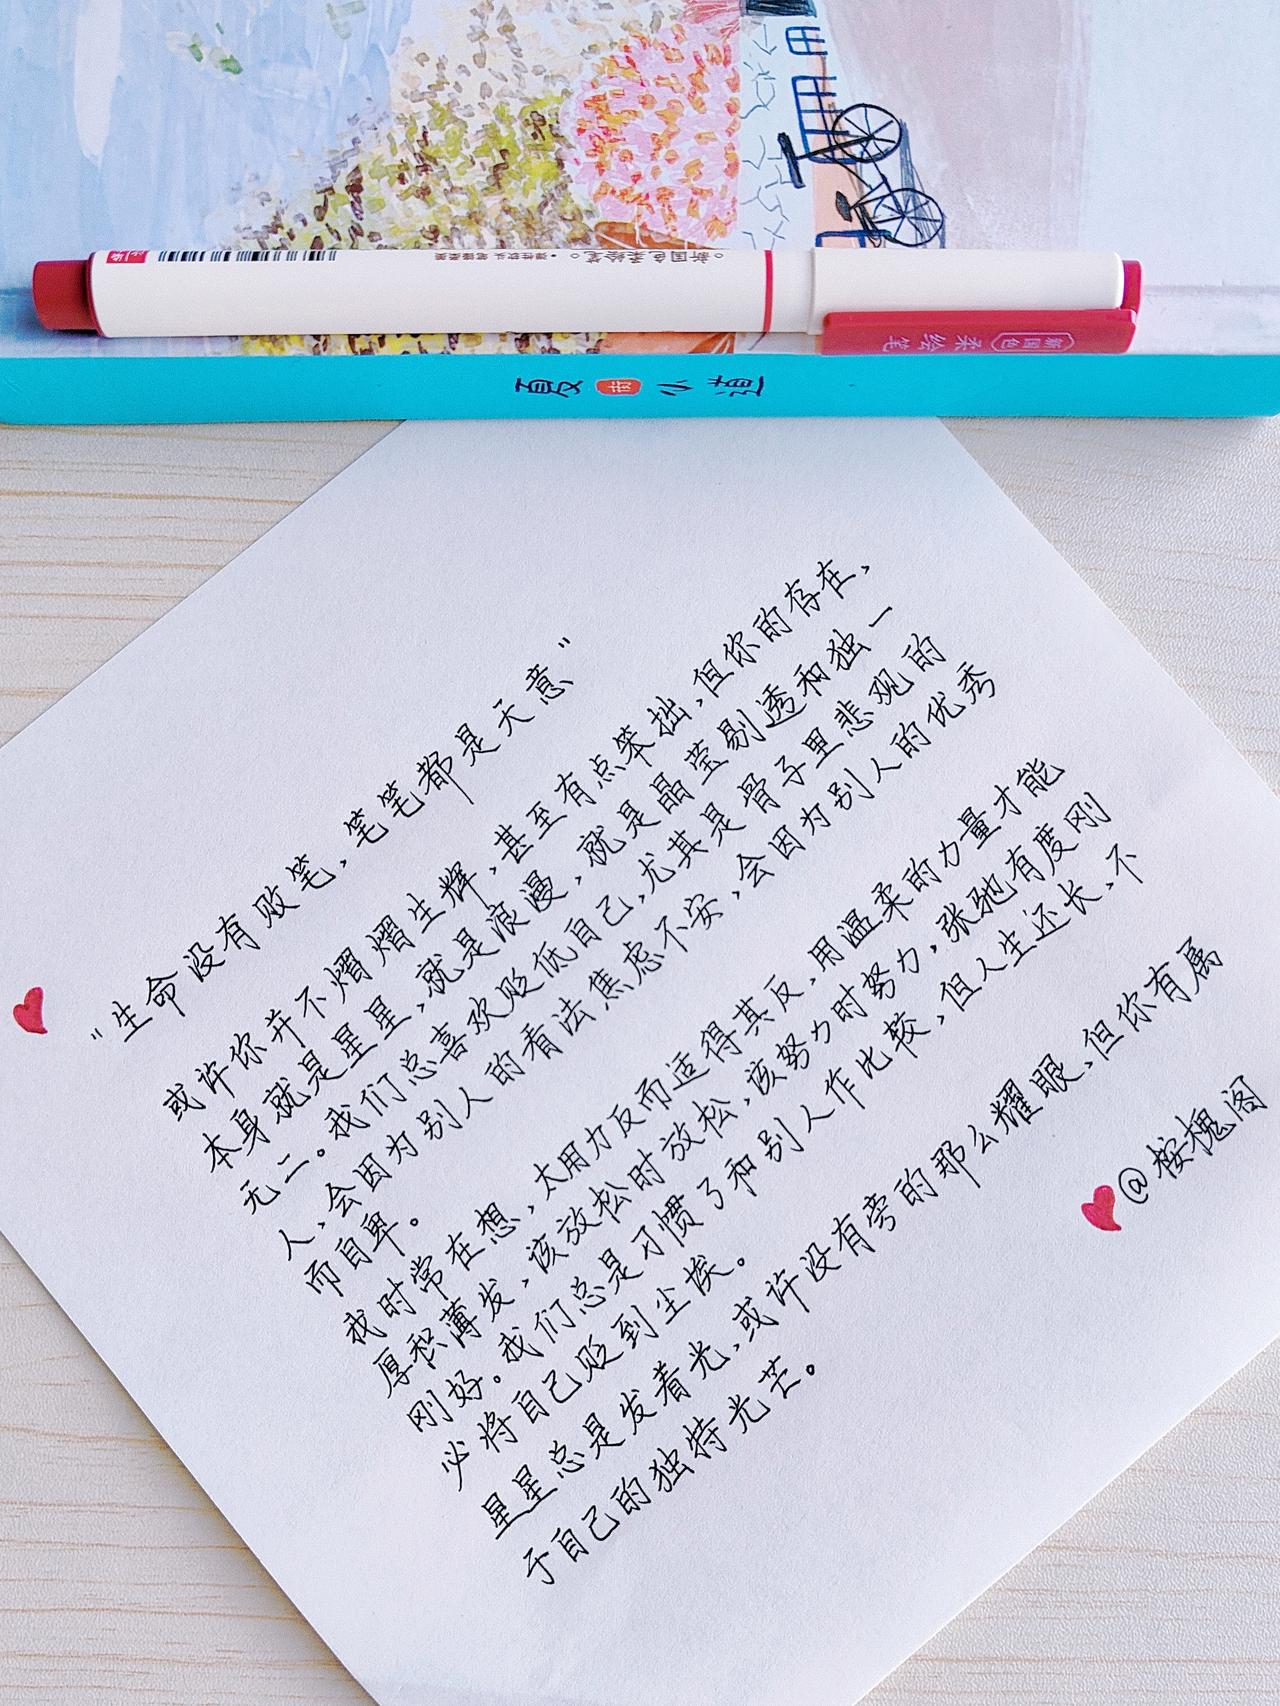 新国色彩绘笔
弹性软头
新国色
彩绘笔
夏时小道
"生命没有败笔，笔笔都是天意"
或许你并不熠熠生辉，甚至有点笨拙，但你的存在，
本身就是星星，就是浪漫，就是晶莹剔透和独一
无二。我们总喜欢贬低自己，尤其是骨子里悲观的
人，会因为别人的看法焦虑不安，会因为别人的优秀
而自卑。
我时常在想，太用力反而适得其反，用温柔的力量才能
厚积薄发，该放松时放松，该努力时努力，张弛有度刚
刚好。我们总是习惯了和别人作比较，但人生还长，不
必将自己贬到尘埃。
星星总是发着光，或许没有旁的那么耀眼，但你有属
于自己的独特光芒。
@桉槐阁